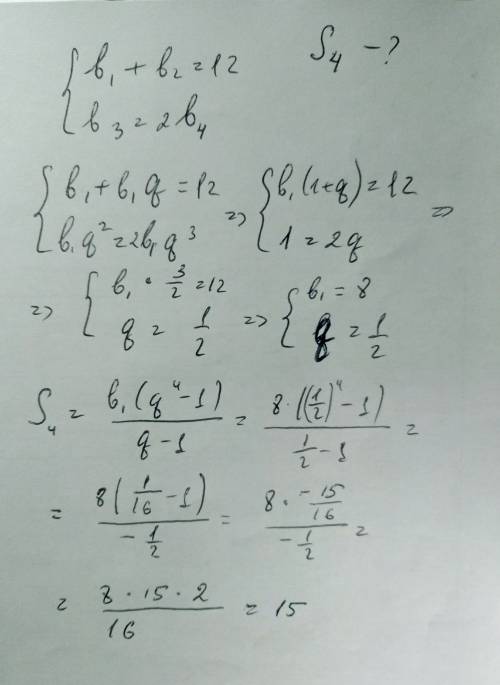 { b₁ + b₂ = 12   S₄ - ?
{ b₃ = 2b₄
{ b₁ + b₁q = 12 => { b₁(1+q) = 12 =>
{ b₁q² = 2b₁q³     { 1 = 2q
=> { b₁ · 3/2 = 12 => { b₁ = 8
   { q = 1/2          { q = 1/2
S₄ = b₁(q⁴-1)/(q-1) = 8·((1/2)⁴-1)/(1/2-1) =
= 8(1/16-1)/(-1/2) = (8·-15/16)/(-1/2) =
= (8·15·2)/16 = 15